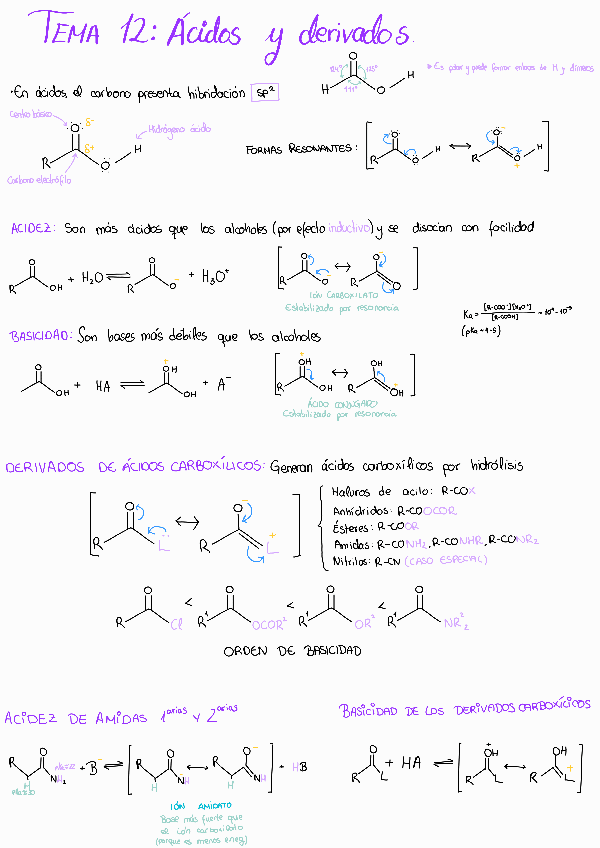 TEMA 12: Ácidos y derivados.
·En ácidos, el carbono presenta hibridación sp²
124° 125° 111°
O H O H
* Es polar y puede formar enlaces de H y dímeros
Centro básico
δ-
Hidrógeno ácido
δ+
R O H
Carbono electrófilo
FORMAS RESONANTES:
ACIDEZ: Son más ácidos que los alcoholes (por efecto inductivo) y se disocian con facilidad
R OH + H₂O ⇌ R O⁻ + H₃O⁺
IÓN CARBOXILATO
Estabilizado por resonancia
Ka = [R-COO⁻][H₃O⁺] / [R-COOH] ~ 10⁻⁴ - 10⁻⁵
(pKa ~ 4-5)
BASICIDAD: Son bases más débiles que los alcoholes
OH + HA ⇌ OH OH + A⁻
ÁCIDO CONJUGADO
Estabilizado por resonancia
DERIVADOS DE ÁCIDOS CARBOXÍLICOS: Generan ácidos carboxílicos por hidrólisis
Haluros de acilo: R-COX
Anhídridos: R-COOCOR
Ésteres: R-COOR
Amidas: R-CONH₂, R-CONHR, R-CONR₂
Nitrilos: R-CN (CASO ESPECIAL)
R Cl < R¹ OCOR² < R¹ OR² < R¹ NR₂²
ORDEN DE BASICIDAD
ACIDEZ DE AMIDAS 1arias Y 2arias
BASICIDAD DE LOS DERIVADOS CARBOXÍCICOS
R O NH₂ + B⁻ ⇌ R O NH ↔ R O⁻ NH + HB
R O L + HA ⇌ R OH L ↔ R OH L
pKa≈30
IÓN AMIDATO
Base más fuerte que
el ión carboxilato
(porque es menos eneg)